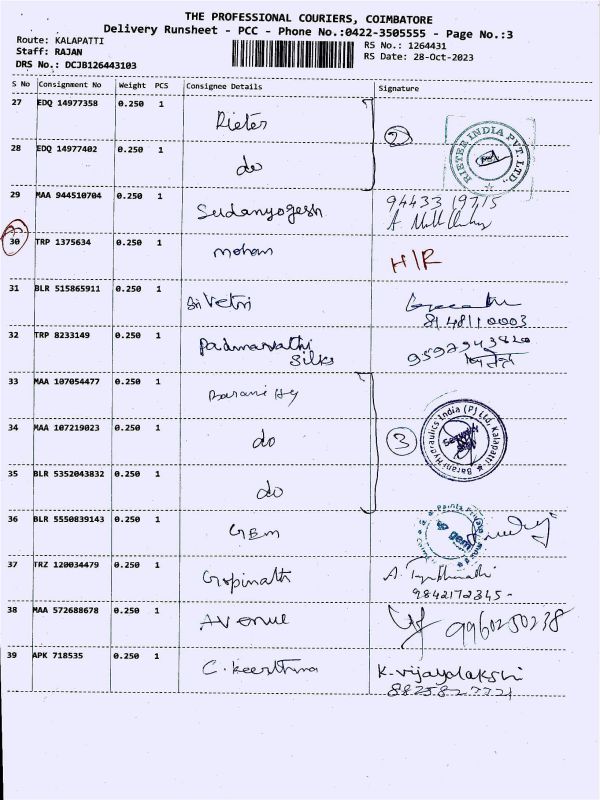 THE PROFESSIONAL COURIERS, COIMBATORE
Delivery Runsheet - PCC - Phone No.:0422-3505555 - Page No.:3
Route: KALAPATTI
Staff: RAJAN
DRS No.: DCJB126443103
RS No.: 1264431
RS Date: 28-Oct-2023
S No Consignment No Weight PCS Consignee Details Signature
27 EDQ 14977358 0.250 1 Rieter
28 EDQ 14977402 0.250 1 do
2
RIETER INDIA PVT. LTD.
29 MAA 944510704 0.250 1 Sudanyogesh 94433 19715
30 TRP 1375634 0.250 1 mohan H/R
31 BLR 515865911 0.250 1 Sri Vetri
8148110003
32 TRP 8233149 0.250 1 Padmavathi Silks 9597943820
33 MAA 107054477 0.250 1 Barani Hy
34 MAA 107219023 0.250 1 do
3
Barani Hydraulics India (P) Ltd, Kalapatti
Security
35 BLR 5352043832 0.250 1 do
36 BLR 5550839143 0.250 1 GEM
gem Paints Private
37 TRZ 120034479 0.250 1 Gopinath
9842172345-
38 MAA 572688678 0.250 1 AVenue 9960250238
39 APK 718535 0.250 1 C. keerthina K. vijayalakshi
8825827721